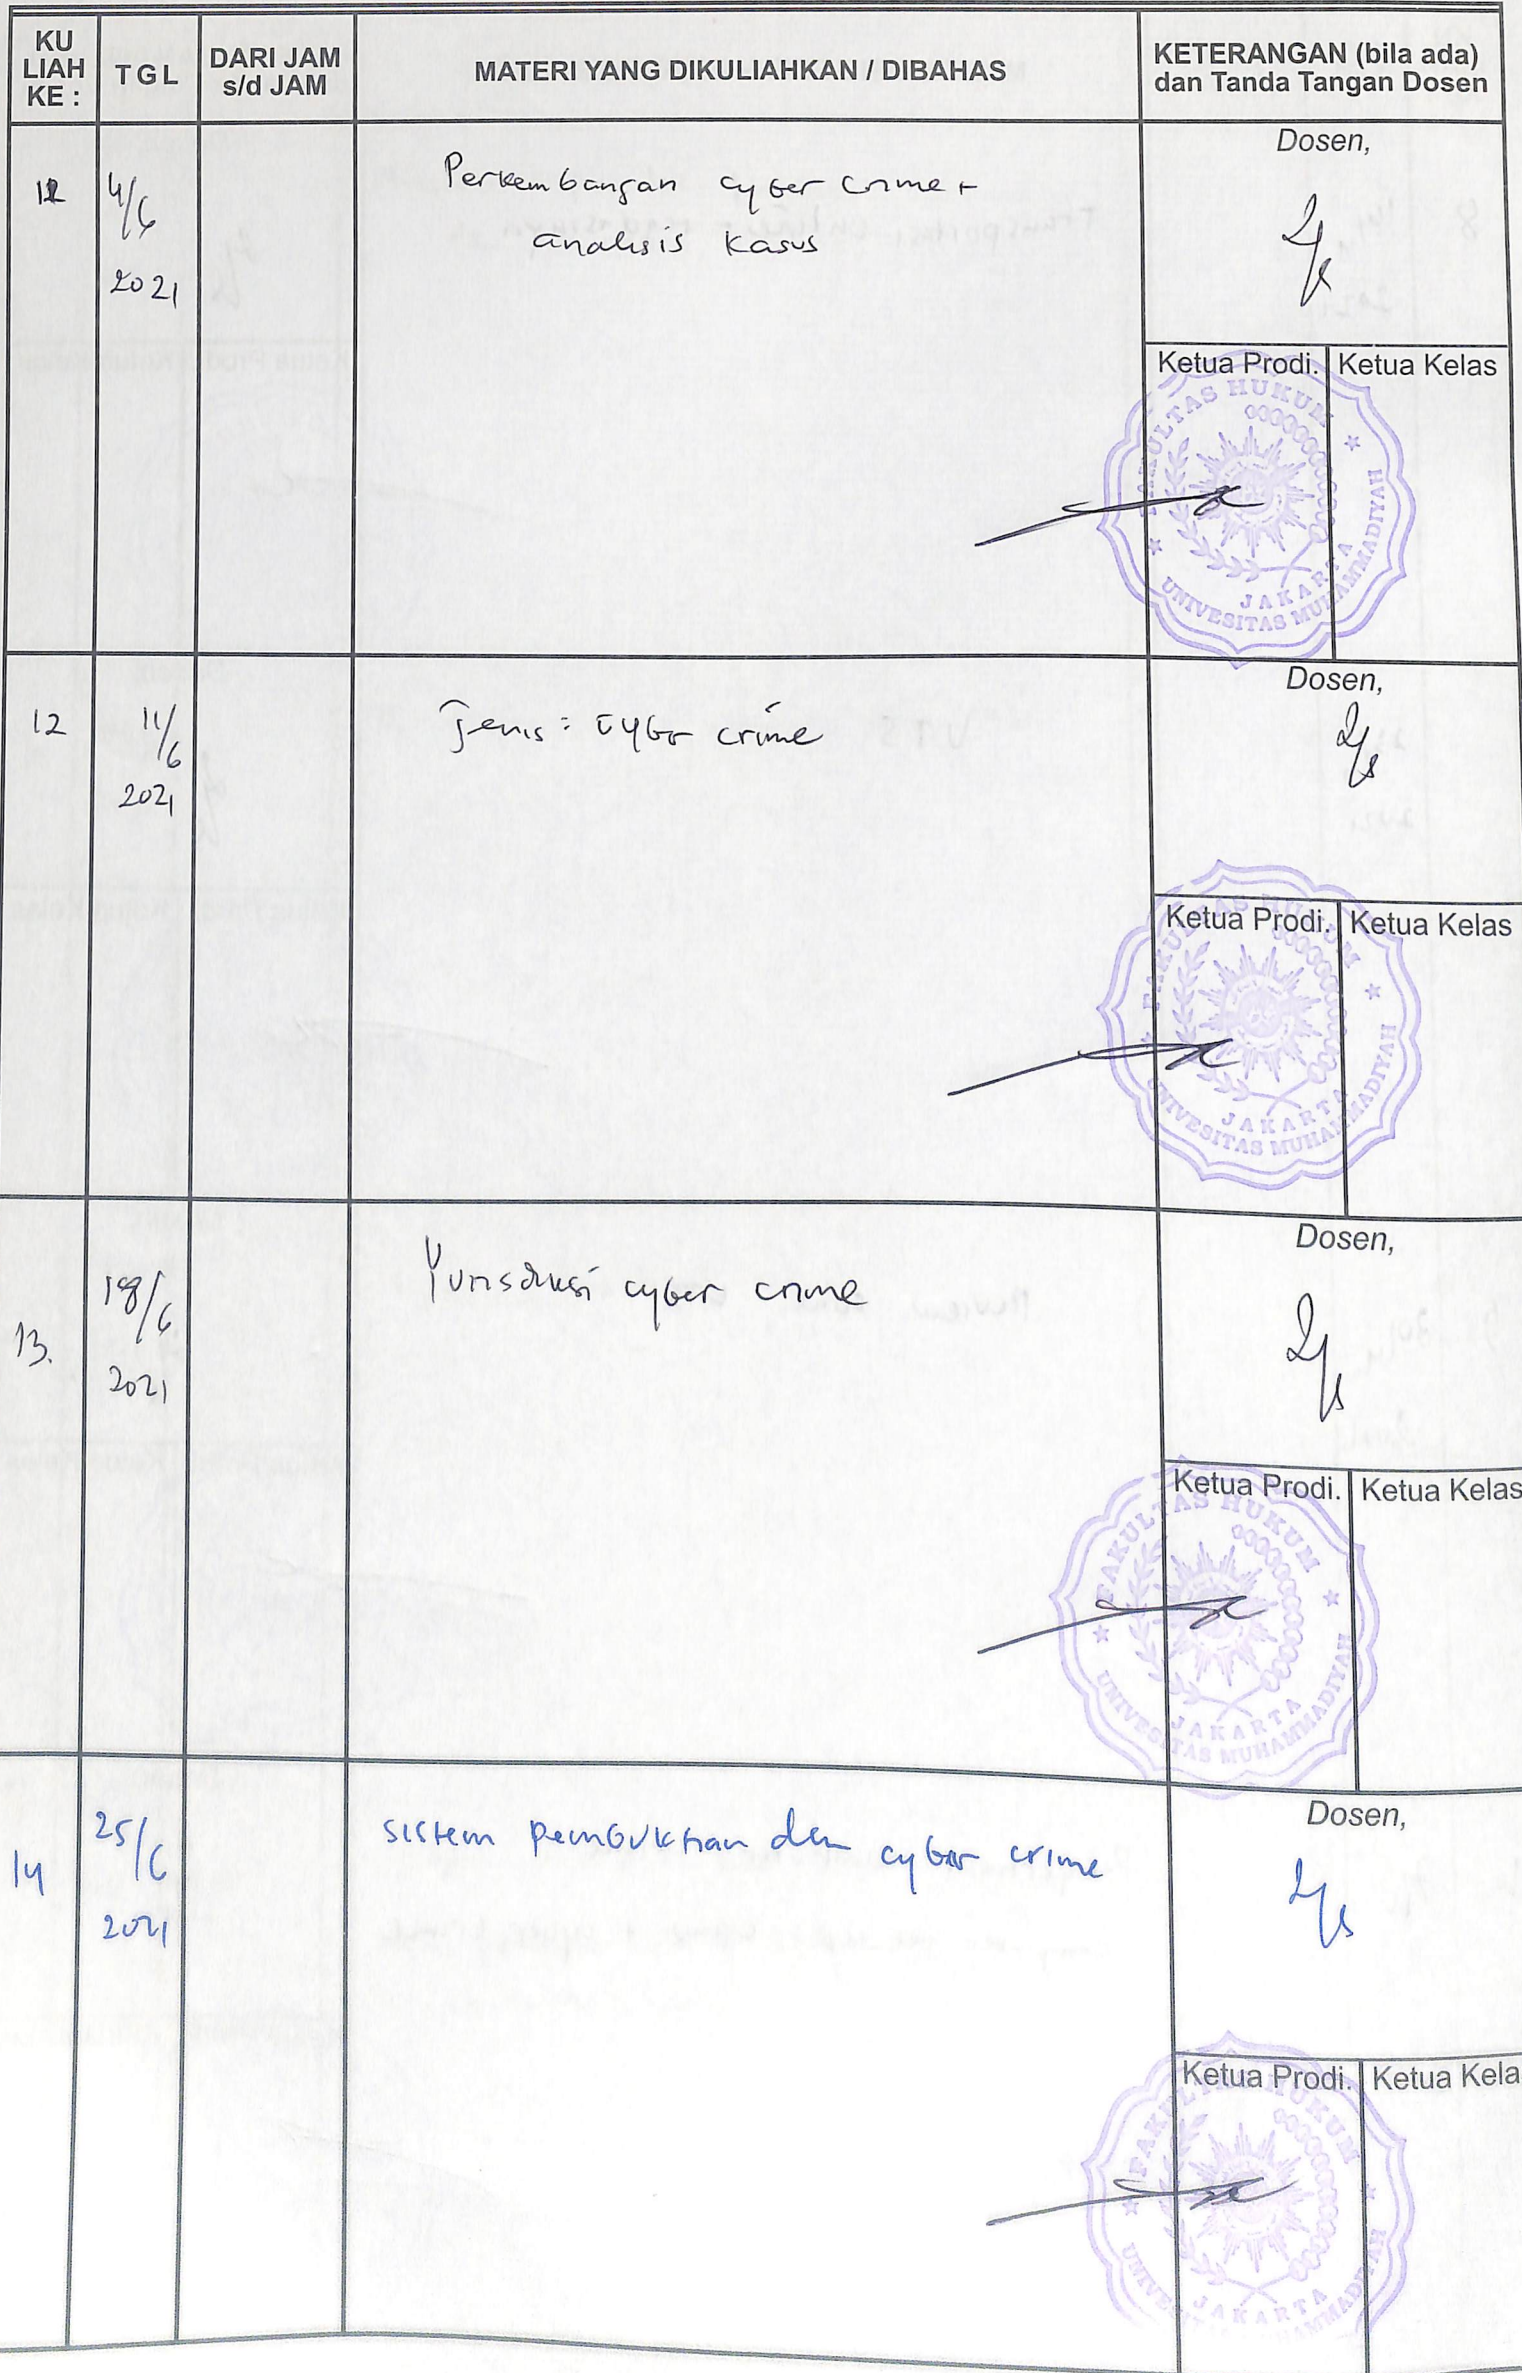 KU LIAH KE : TGL DARI JAM s/d JAM MATERI YANG DIKULIAHKAN / DIBAHAS KETERANGAN (bila ada) dan Tanda Tangan Dosen
Dosen,
4/6
2021
Perkembangan cyber crime +
analisis kasus
Ketua Prodi. Ketua Kelas
FAKULTAS HUKUM
UNIVESITAS MUHAMMADIYAH
JAKARTA
Dosen,
12 11/6
2021
Jenis = cyber crime
Ketua Prodi. Ketua Kelas
FAKULTAS HUKUM
UNIVESITAS MUHAMMADIYAH
JAKARTA
Dosen,
13. 18/6
2021
Yurisdiksi cyber crime
Ketua Prodi. Ketua Kelas
FAKULTAS HUKUM
UNIVESITAS MUHAMMADIYAH
JAKARTA
Dosen,
14 25/6
2021
sistem pembuktian dlm cyber crime
Ketua Prodi. Ketua Kela
FAKULTAS HUKUM
UNIVESITAS MUHAMMADIYAH
JAKARTA